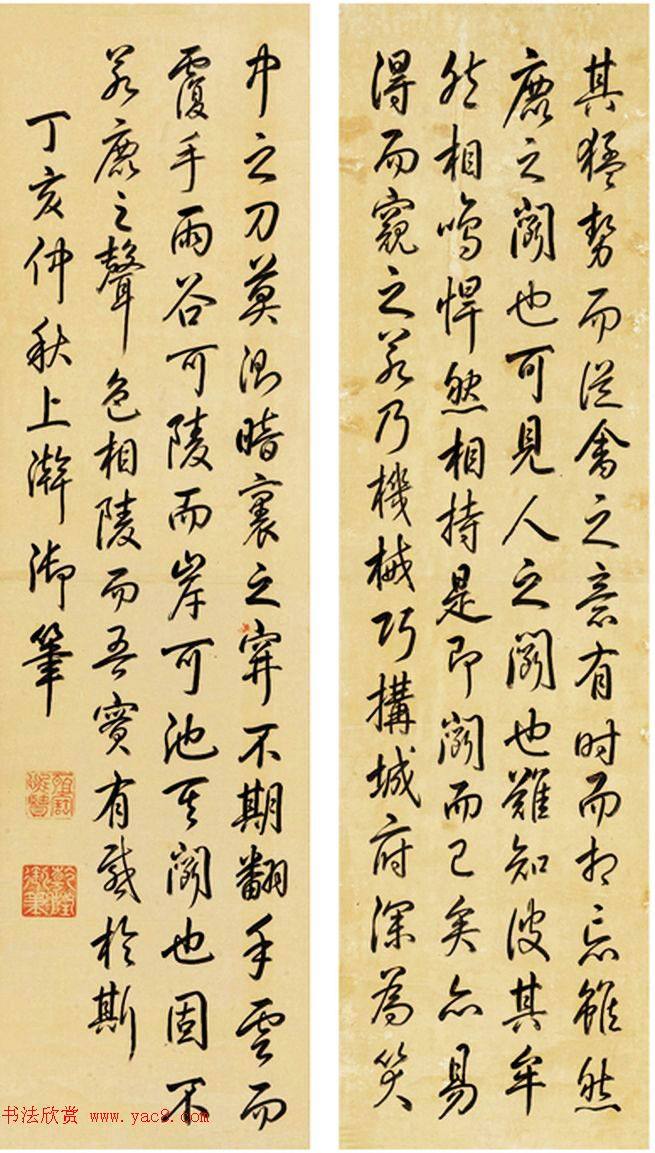 其猛势而従禽之意有时而相忘雖然
鹿之鬪也可見人之鬪也難知彼其牟
然相鳴悍然相持是即鬪而已矣亦易
得而窺之若乃機械巧搆城府深為笑
中之刀莫測暗裏之穽不期翻手雲而
覆手雨谷可陵而岸可池其鬪也固不
若鹿之聲色相陵而吾實有感於斯
丁亥仲秋上澣御筆
乾隆御筆
书法欣赏 www.yac8.com